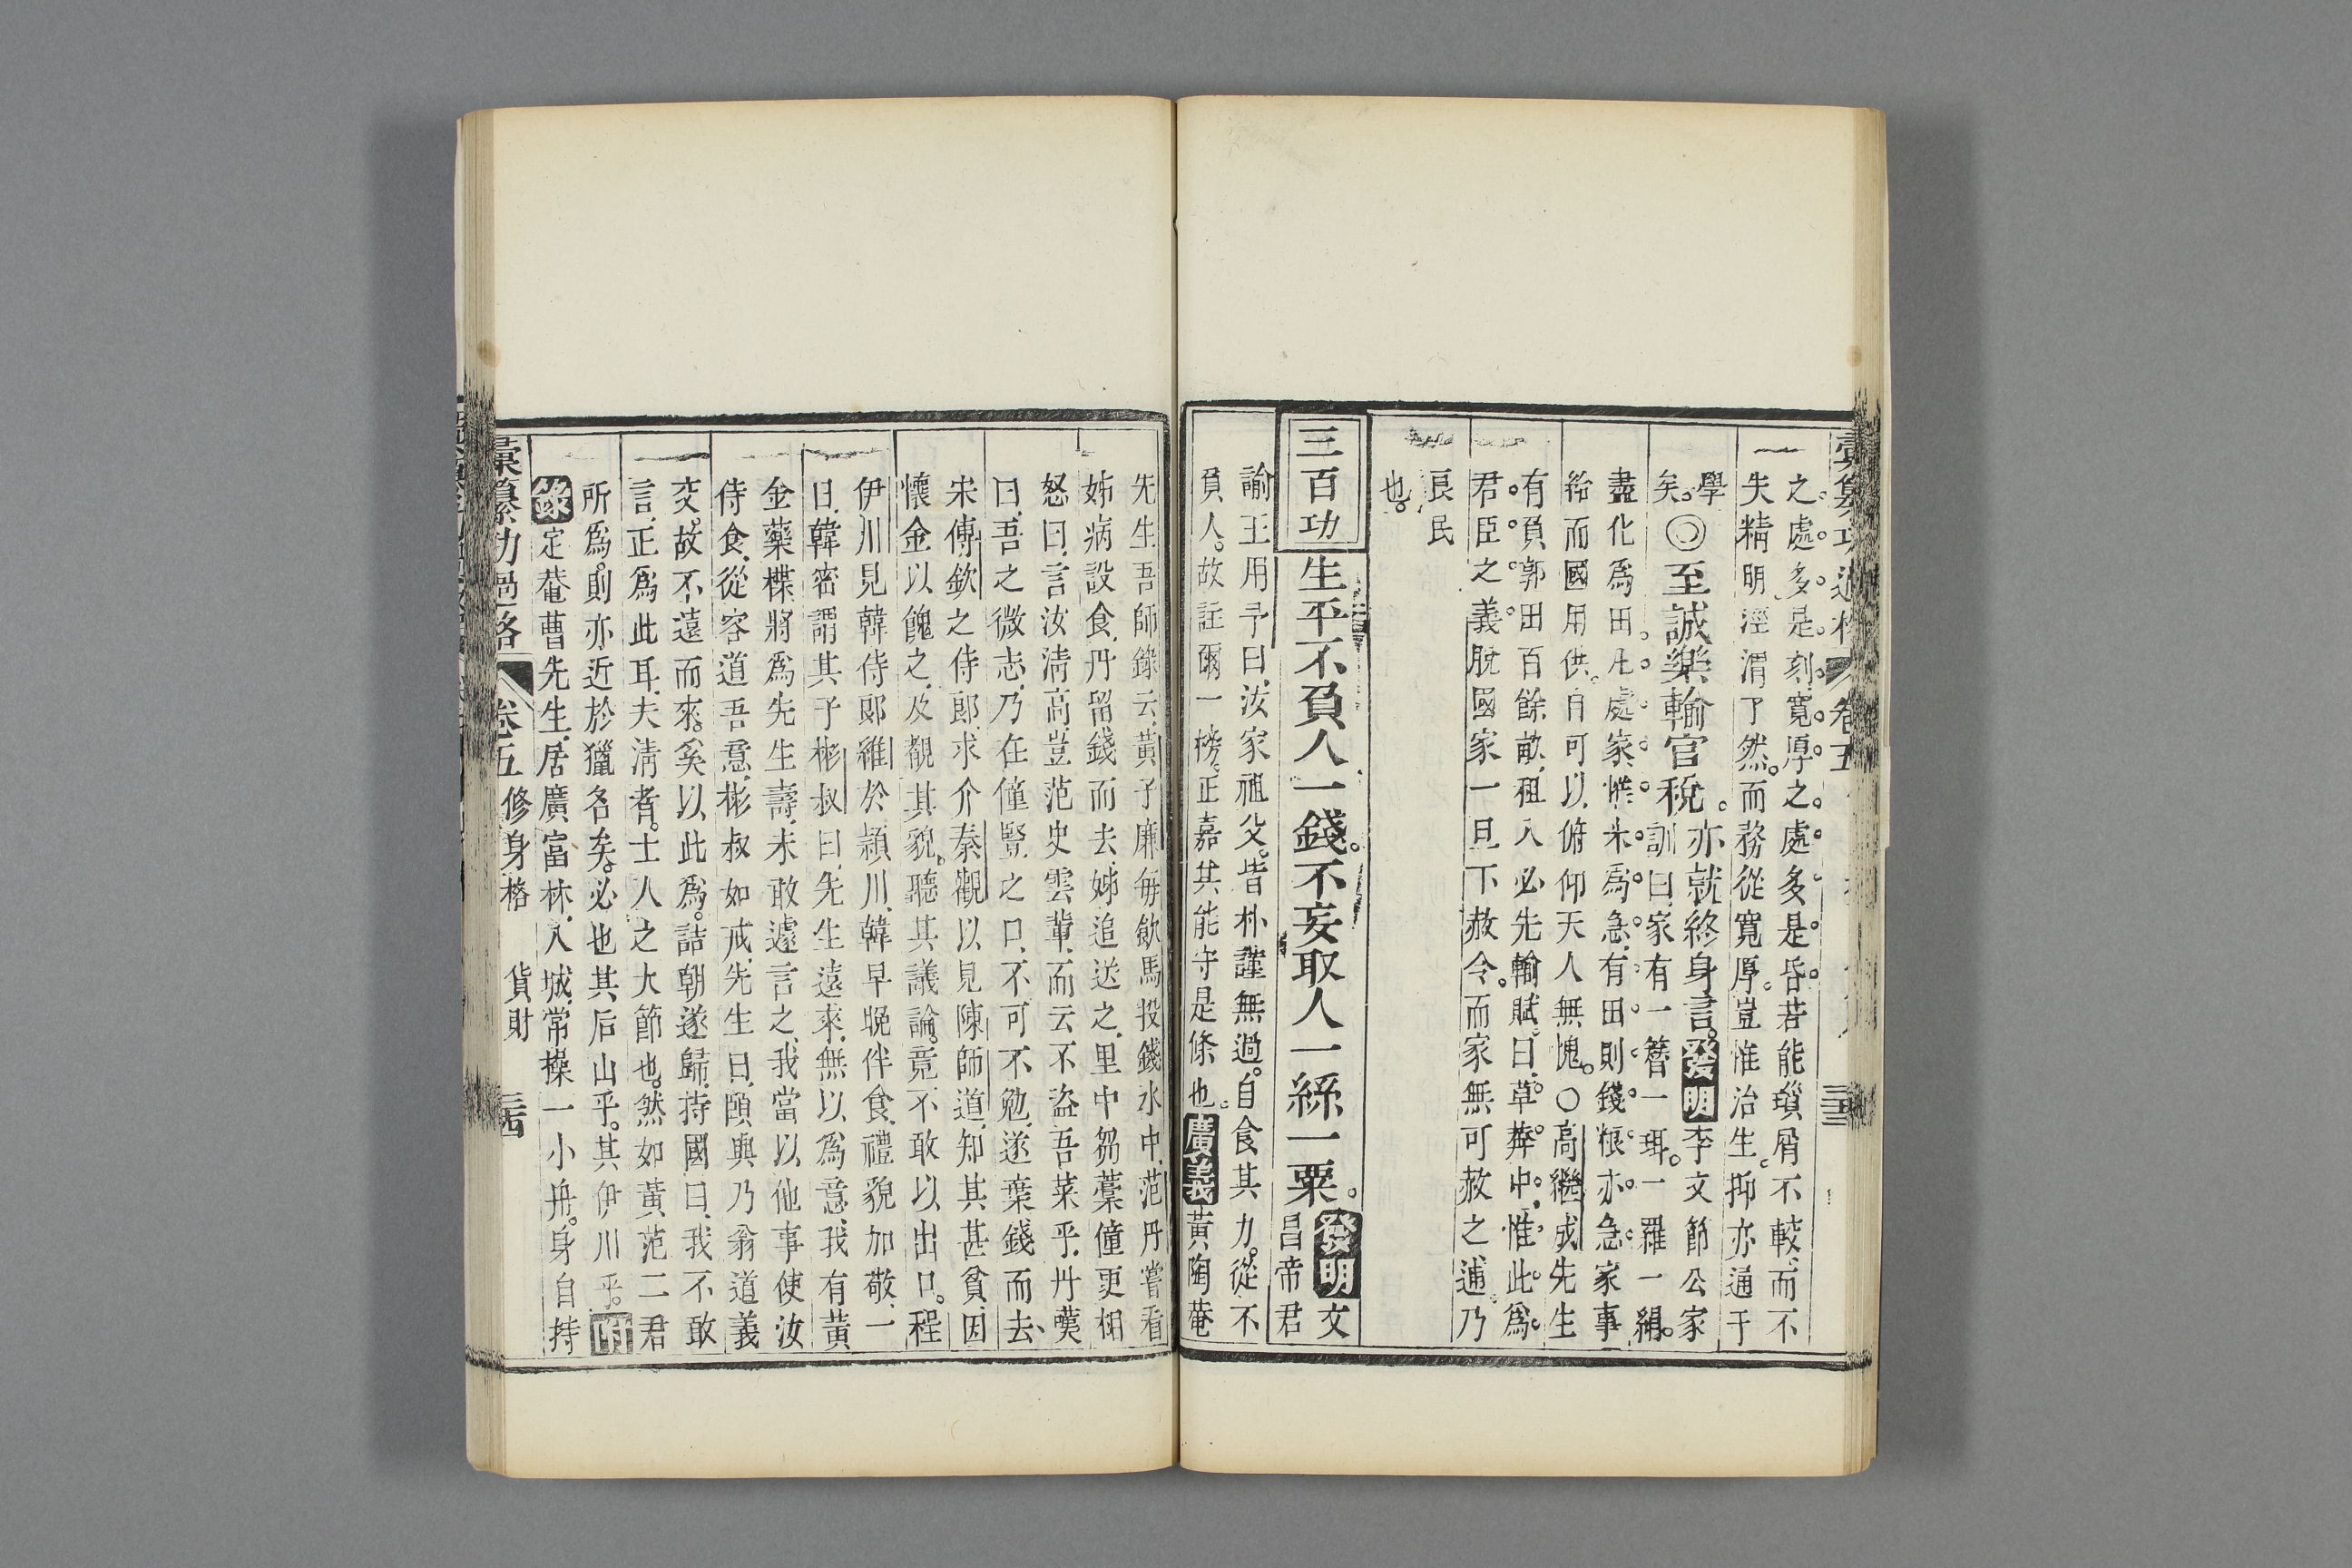 彙纂功過格 卷五
之處多是刻寬厚之處多是昏若能瑣屑不較而不
失精明涇渭了然而務從寬厚豈惟治生抑亦通于
學
矣〇至誠樂輸官稅亦就終身言發明李文節公家
訓曰家有一簪一珥一羅一絹
盡化為田凡處家惟米為急有田則錢粮亦急家事
給而國用供自可以俯仰天人無愧〇高繼成先生
有負郭田百餘畝租入必先輸賦曰草莽中惟此為
君臣之義脫國家一旦下赦令而家無可赦之逋乃
良民
也
三百功
生平不負人一錢不妄取人一絲一粟發明文
昌帝君
諭王用予曰汝家祖父皆朴謹無過自食其力從不
負人故註爾一榜正嘉其能守是條也廣義黃陶菴
先生吾師錄云黃子廉每飲馬投錢水中范丹嘗看
姊病設食丹留錢而去姊追送之里中芻藁僮更相
怒曰言汝清高豈范史雲輩而云不盜吾菜乎丹嘆
曰吾之微志乃在僮豎之口不可不勉遂棄錢而去
宋傅欽之侍郎求介秦觀以見陳師道知其甚貧因
懷金以餽之及覩其貌聽其議論竟不敢以出口程
伊川見韓侍郎維於頴川韓早晚伴食禮貌加敬一
日韓密謂其子彬叔曰先生遠來無以為意我有黃
金藥楪將為先生壽未敢遽言之我當以他事使汝
侍食從容道吾意彬叔如戒先生曰頤與乃翁道義
交故不遠而來奚以此為詰朝遂歸持國曰我不敢
言正為此耳夫清者士人之大節也然如黃范二君
所為則亦近於獵名矣必也其后山乎其伊川乎附
錄定菴曹先生居廣富林入城常操一小舟身自持
彙纂功過格 卷五 修身格 貨財 三四